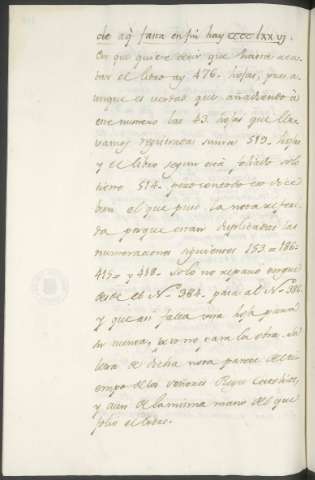 de aq̃ fasta en fin hay cccclxxvj.
En que quiere decir que hasta aca-
bar el libro ay 476. hojas, pues a-
unque es verdad que añadiendo à
este numero las 43. hojas que lle-
vamos registradas suman 519. hojas
y el libro segun està foliado solo
tiene 514. pero con todo eso dice
bien el que puso la nota referi-
da porque estan duplicados las
numeraciones siguientes 153 = 186.
415. y 418. Solo no reparò en que
desde el Nº 384. pasa al Nº 386
y que asi falta una hoja para
su cuenta, pero no para la obra. La
letra de dicha nota parece del ti-
empo de los Señores Reyes Catholicos,
y aun de la misma mano del que
foliò el libro.